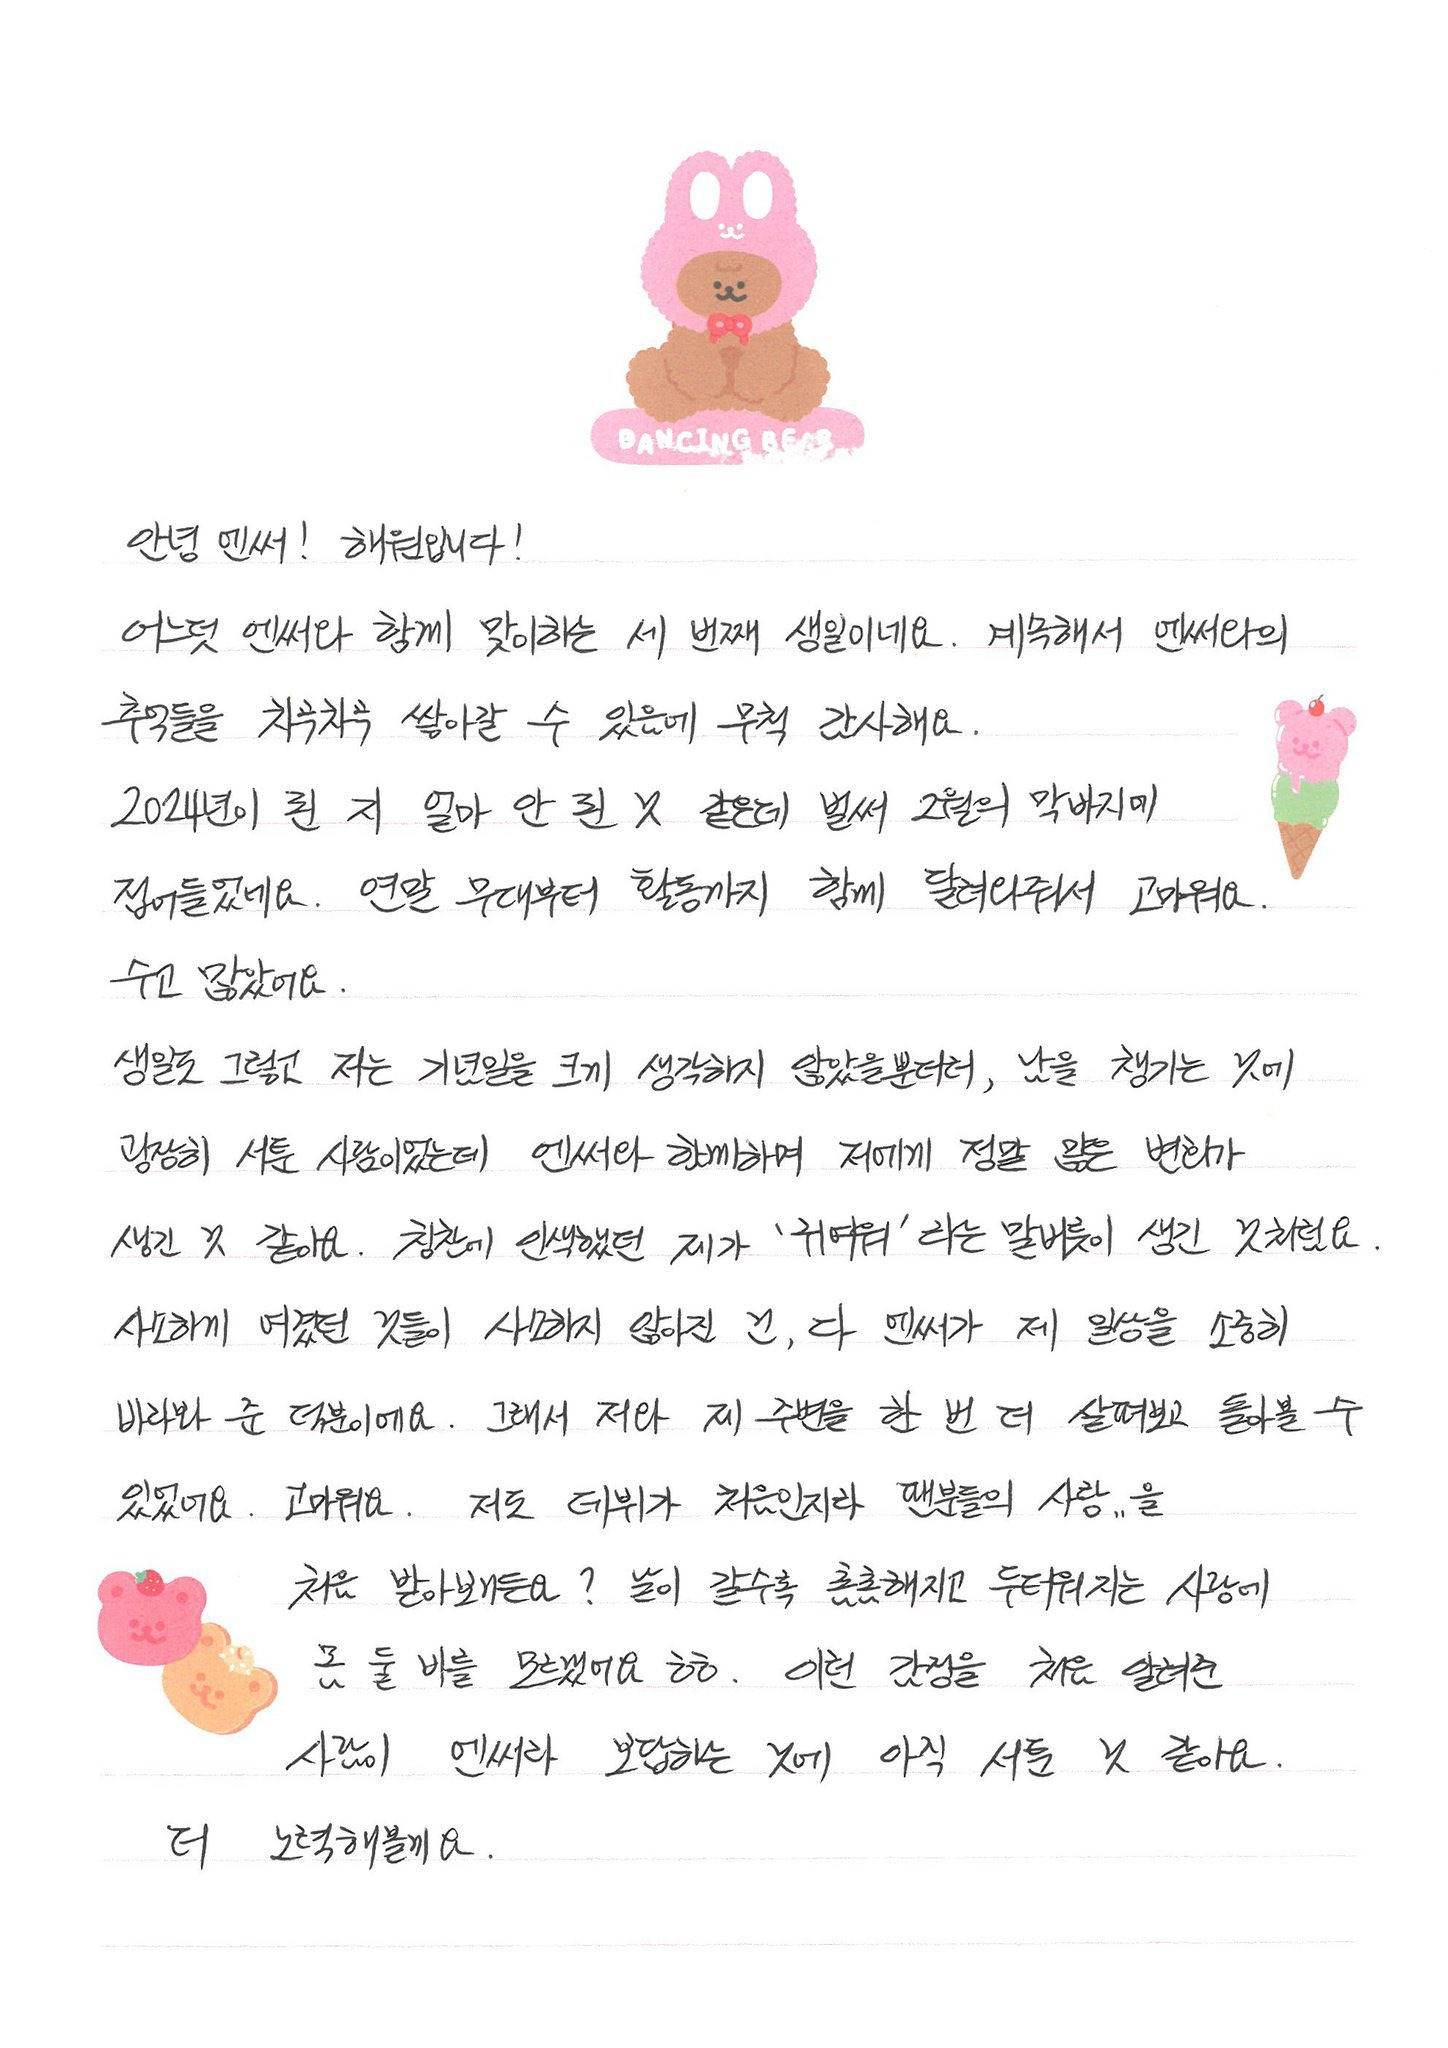 DANCING BEAR
안녕 엔써! 해원입니다!
어느덧 엔써와 함께 맞이하는 세 번째 생일이네요. 계속해서 엔써와의
추억들을 차곡차곡 쌓아갈 수 있음에 무척 감사해요.
2024년이 된 지 얼마 안 된 것 같은데 벌써 2월의 막바지에
접어들었네요. 연말 무대부터 활동까지 함께 달려와줘서 고마워요.
수고 많았어요.
생일도 그렇고 저는 기념일을 크게 생각하지 않았을뿐더러, 남을 챙기는 것에
굉장히 서툰 사람이었는데 엔써와 함께하며 저에게 정말 많은 변화가
생긴 것 같아요. 칭찬에 인색했던 제가 '귀여워' 라는 말버릇이 생긴 것처럼요.
사소하게 여겼던 것들이 사소하지 않아진 건, 다 엔써가 제 일상을 소중히
바라봐 준 덕분이에요. 그래서 저와 제 주변을 한 번 더 살펴보고 돌아볼 수
있었어요. 고마워요. 저도 데뷔가 처음인지라 팬분들의 사랑,,을
처음 받아보거든요? 날이 갈수록 촘촘해지고 두터워지는 사랑에
몸 둘 바를 모르겠어요 ㅎㅎ. 이런 감정을 처음 알려준
사람이 엔써라 보답하는 것에 아직 서툰 것 같아요.
더 노력해볼게요.